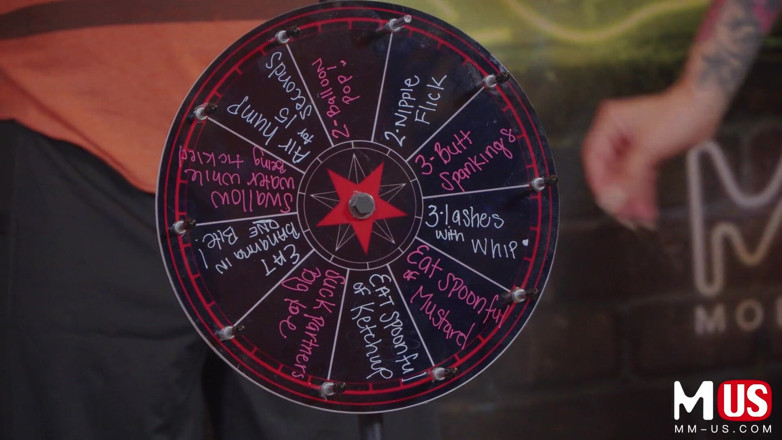 2-Balloon
Pops!
2-Nipple
Flick
3-Butt
Spankings
3-lashes
with Whip.
Eat spoonful
of Mustard
EAT spoonful
of Ketchup
Suck partners
big toe
EAT
BANANNA IN
ONE Bite!
Swallow
water while
being tickled
Air hump
for 15
seconds
M
MO
M US
MM-US.COM